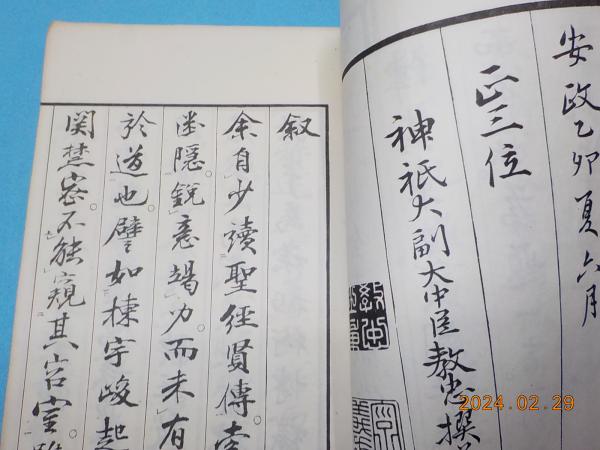 安政乙卯夏六月
正三位
神祇大副大中臣教忠撰
叙
余自少讀聖經賢傳
隱鋭意竭力而未有
於道也譬如棟宇峻起
関楚密不能窺其宮室
2024.02.29